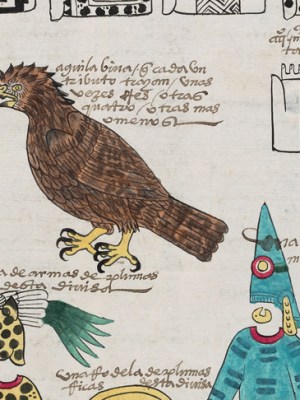 aquila biua / q̃ cada vn
tributo trayan / vnas
vezes tres / otras
quatro / otras mas
o menos
a de armas de plumas
desta diuisa
vna
de la de plumas
ricas desta diuisa